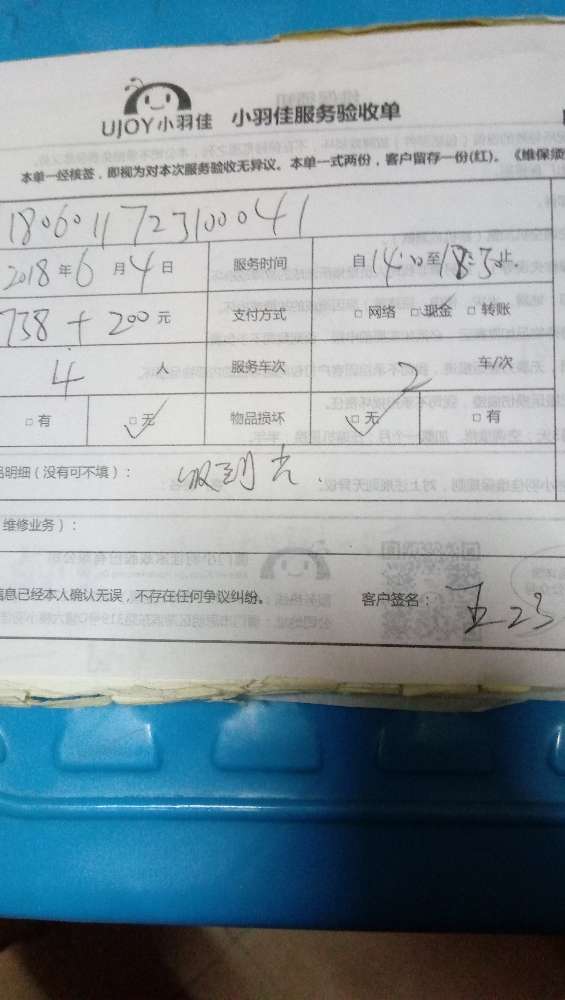 UJOY小羽佳 小羽佳服务验收单
本单一经核签，即视为对本次服务验收无异议。本单一式两份，客户留存一份(红)。《维保须
180601172310004​1
2018年6月4日 服务时间 自14:00至18:30止
738+200元 支付方式 □网络 □现金 □转账
4人 服务车次 2车/次
□有 □无 物品损坏 □无 □有
品明细（没有可不填）：
维修业务）：
信息已经本人确认无误，不存在任何争议纠纷。 客户签名：